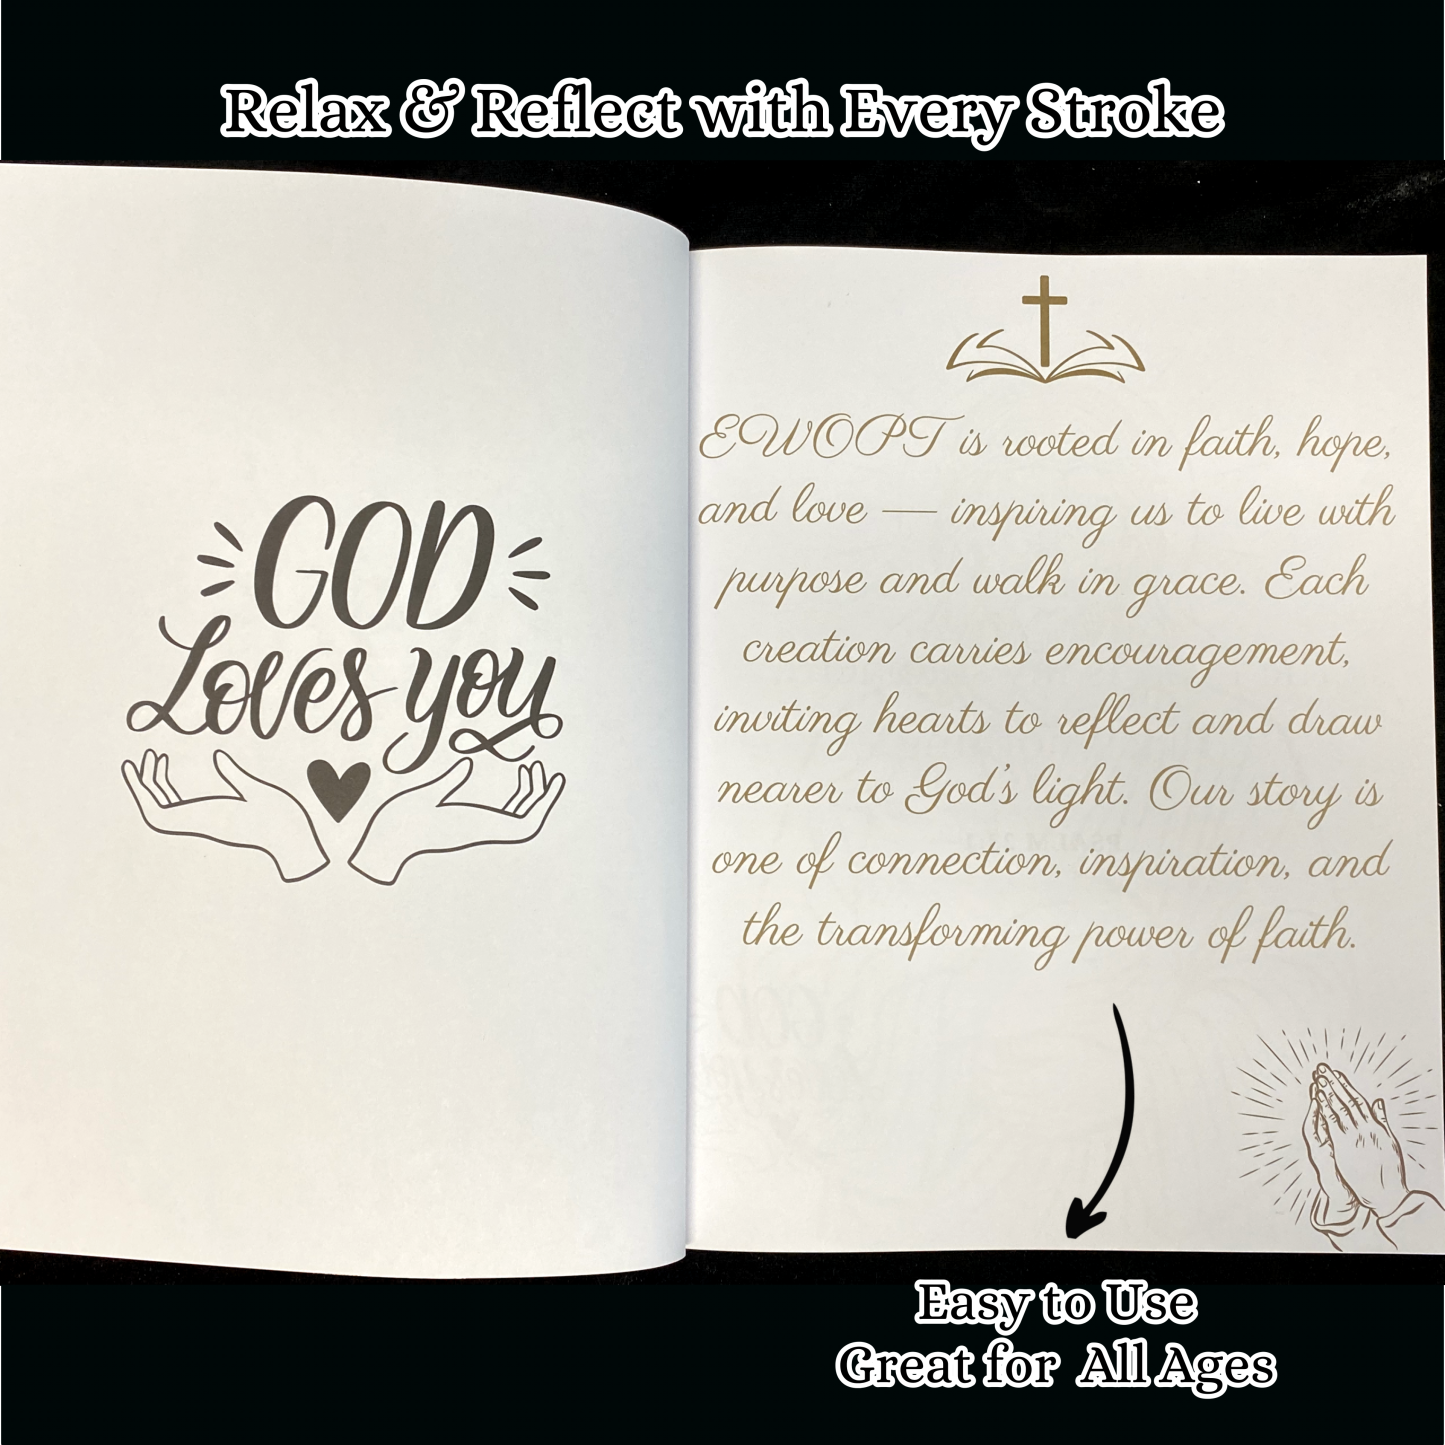 Relax & Reflect with Every Stroke
GOD
Loves you
EWOPT is rooted in faith, hope,
and love — inspiring us to live with
purpose and walk in grace. Each
creation carries encouragement,
inviting hearts to reflect and draw
nearer to God's light. Our story is
one of connection, inspiration, and
the transforming power of faith.
Easy to Use
Great for All Ages